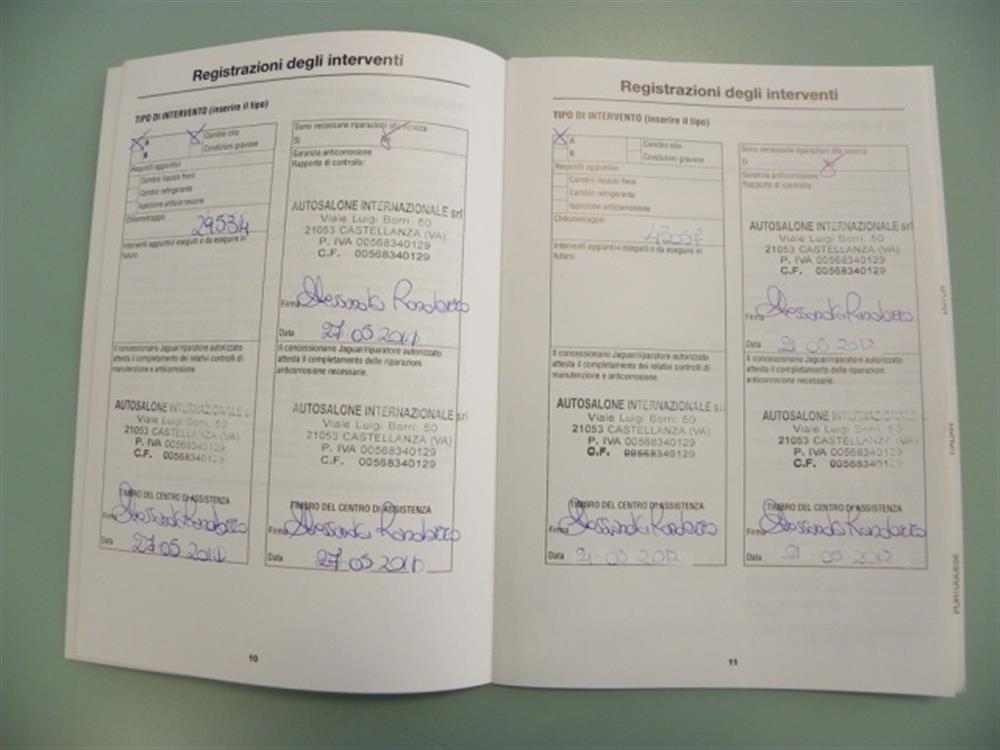 Registrazioni degli interventi
TIPO DI INTERVENTO (inserire il tipo)
A
B
Cambio olio
Condizioni gravose
Requisiti aggiuntivi
Cambio liquido freni
Cambio refrigerante
Iniezione anticorrosione
Chilometraggio
29534
Interventi aggiuntivi eseguiti o da eseguire in
futuro
Sono necessarie riparazioni alla scocca
Si
Garanzia anticorrosione
Rapporto di controllo:
AUTOSALONE INTERNAZIONALE srl
Viale Luigi Borri, 50
21053 CASTELLANZA (VA)
P. IVA 00568340129
C.F. 00568340129
Firma
Data 27.05.2011
Il concessionario Jaguar/riparatore autorizzato
attesta il completamento dei relativi controlli di
manutenzione e anticorrosione.
AUTOSALONE INTERNAZIONALE
Viale Luigi Borri, 50
21053 CASTELLANZA (VA)
P. IVA 00568340129
C.F. 00568340129
TIMBRO DEL CENTRO DI ASSISTENZA
Firma
Data 27.05.2011
Il concessionario Jaguar/riparatore autorizzato
attesta il completamento delle riparazioni
anticorrosione necessarie.
AUTOSALONE INTERNAZIONALE srl
Viale Luigi Borri, 50
21053 CASTELLANZA (VA)
P. IVA 00568340129
C.F. 00568340129
TIMBRO DEL CENTRO DI ASSISTENZA
Firma
Data 27.05.2011
10
Registrazioni degli interventi
TIPO DI INTERVENTO (inserire il tipo)
A
B
Cambio olio
Condizioni gravose
Requisiti aggiuntivi
Cambio liquido freni
Cambio refrigerante
Iniezione anticorrosione
Chilometraggio
Interventi aggiuntivi eseguiti o da eseguire in
futuro
Sono necessarie riparazioni alla scocca
Si
Garanzia anticorrosione
Rapporto di controllo:
AUTOSALONE INTERNAZIONALE srl
Viale Luigi Borri, 50
21053 CASTELLANZA (VA)
P. IVA 00568340129
C.F. 00568340129
Firma
Data 21.05.2012
Il concessionario Jaguar/riparatore autorizzato
attesta il completamento dei relativi controlli di
manutenzione e anticorrosione.
AUTOSALONE INTERNAZIONALE srl
Viale Luigi Borri, 50
21053 CASTELLANZA (VA)
P. IVA 00568340129
C.F. 00568340129
TIMBRO DEL CENTRO DI ASSISTENZA
Firma
Data 21.05.2012
Il concessionario Jaguar/riparatore autorizzato
attesta il completamento delle riparazioni
anticorrosione necessarie.
AUTOSALONE INTERNAZIONALE srl
Viale Luigi Borri, 50
21053 CASTELLANZA (VA)
P. IVA 00568340129
C.F. 00568340129
TIMBRO DEL CENTRO DI ASSISTENZA
Firma
Data 21.05.2012
11